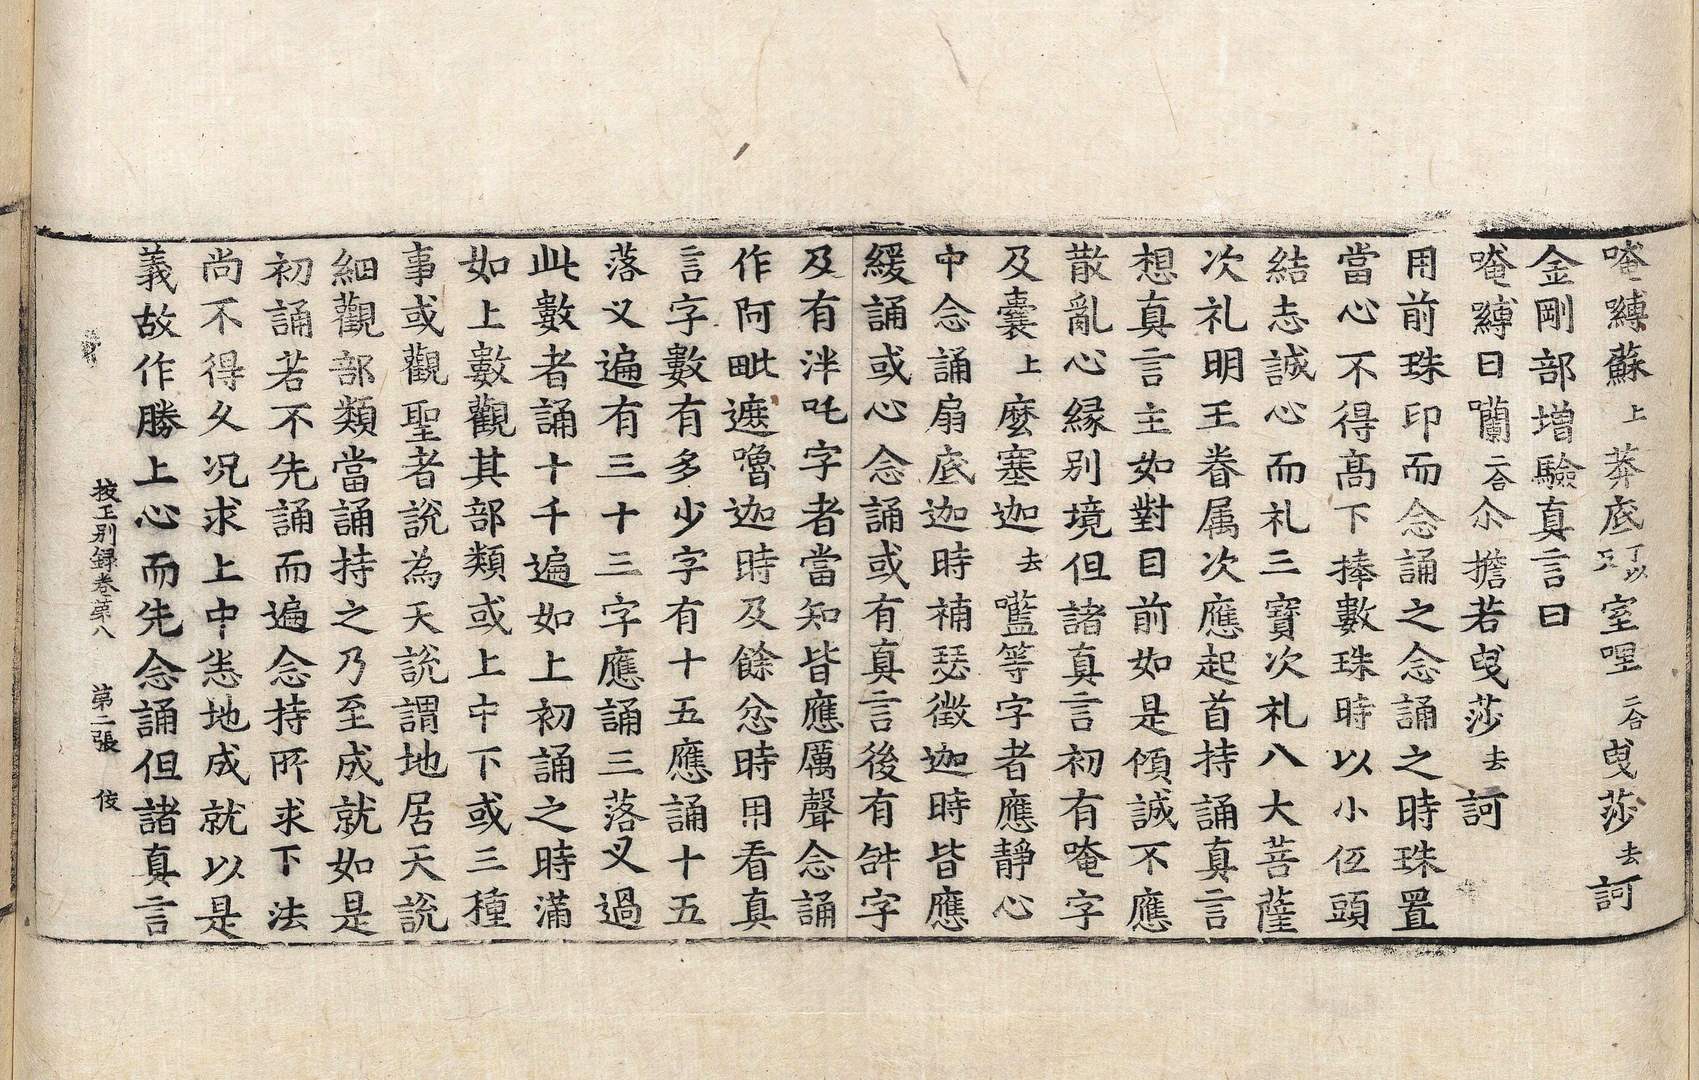 唵嚩蘇上莽底丁以反室哩二合曳莎去訶
金剛部增驗真言曰
唵嚩日囒二合尒擔若曳莎去訶
用前珠印而念誦之念誦之時珠置
當心不得髙下捧數珠時以小仾頭
結志誠心而礼三寶次礼八大菩薩
次礼明王眷属次應起首持誦真言
想真言主如對目前如是傾誠不應
散亂心緣別境但諸真言初有唵字
及囊上麼塞迦去嚂等字者應靜心
中念誦扇底迦時補瑟徵迦時皆應
緩誦或心念誦或有真言後有𤙖字
及有泮吒字者當知皆應厲聲念誦
作阿毗遮嚕迦時及餘忿時用看真
言字數有多少字有十五應誦十五
落叉遍有三十三字應誦三落叉過
此數者誦十千遍如上初誦之時滿
如上數觀其部類或上中下或三種
事或觀聖者說為天說謂地居天說
細觀部類當誦持之乃至成就如是
初誦若不先誦而遍念持所求下法
尚不得久况求上中悉地成就以是
義故作勝上心而先念誦但諸真言
挍正別録卷第八 第二張 伎